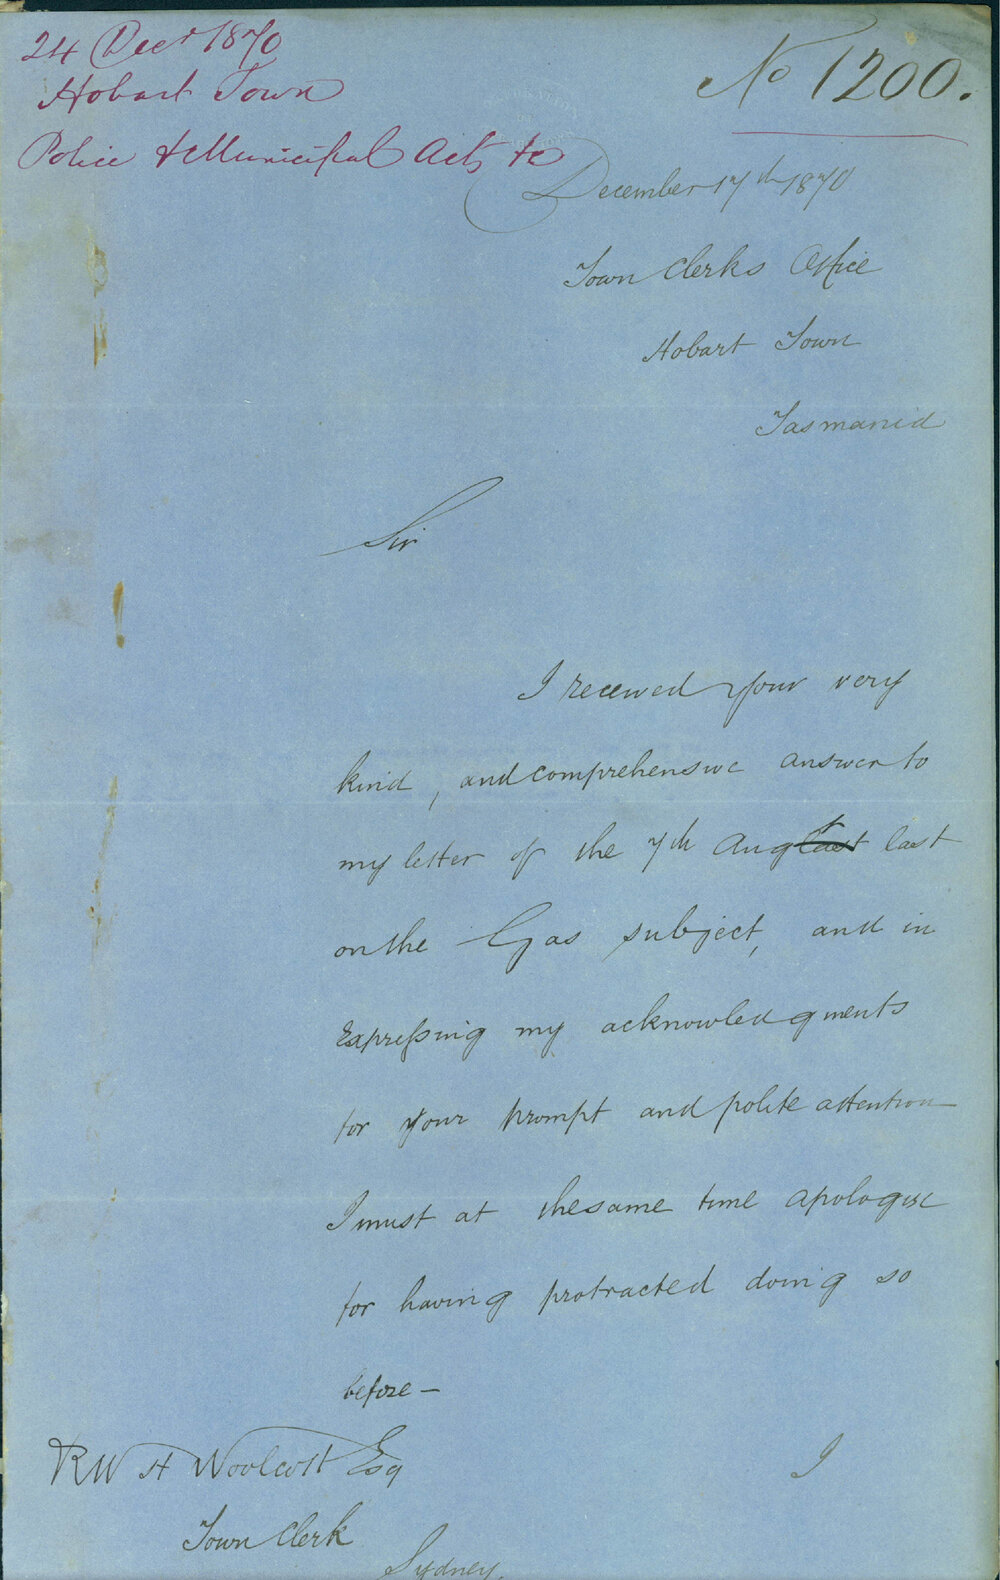 24 Decr 1870
Hobart Town
Police & Municipal Acts &c
No 1200.
December 17th 1870
Town Clerks Office
Hobart Town
Tasmania
Sir
I received your very
kind, and comprehensive answer to
my letter of the 7th Aug last last
on the Gas subject, and in
Expressing my acknowledgments
for your prompt and polite attention
I must at the same time apologise
for having protracted doing so
before —
I
R W H Woolcott Esq
Town Clerk
Sydney.